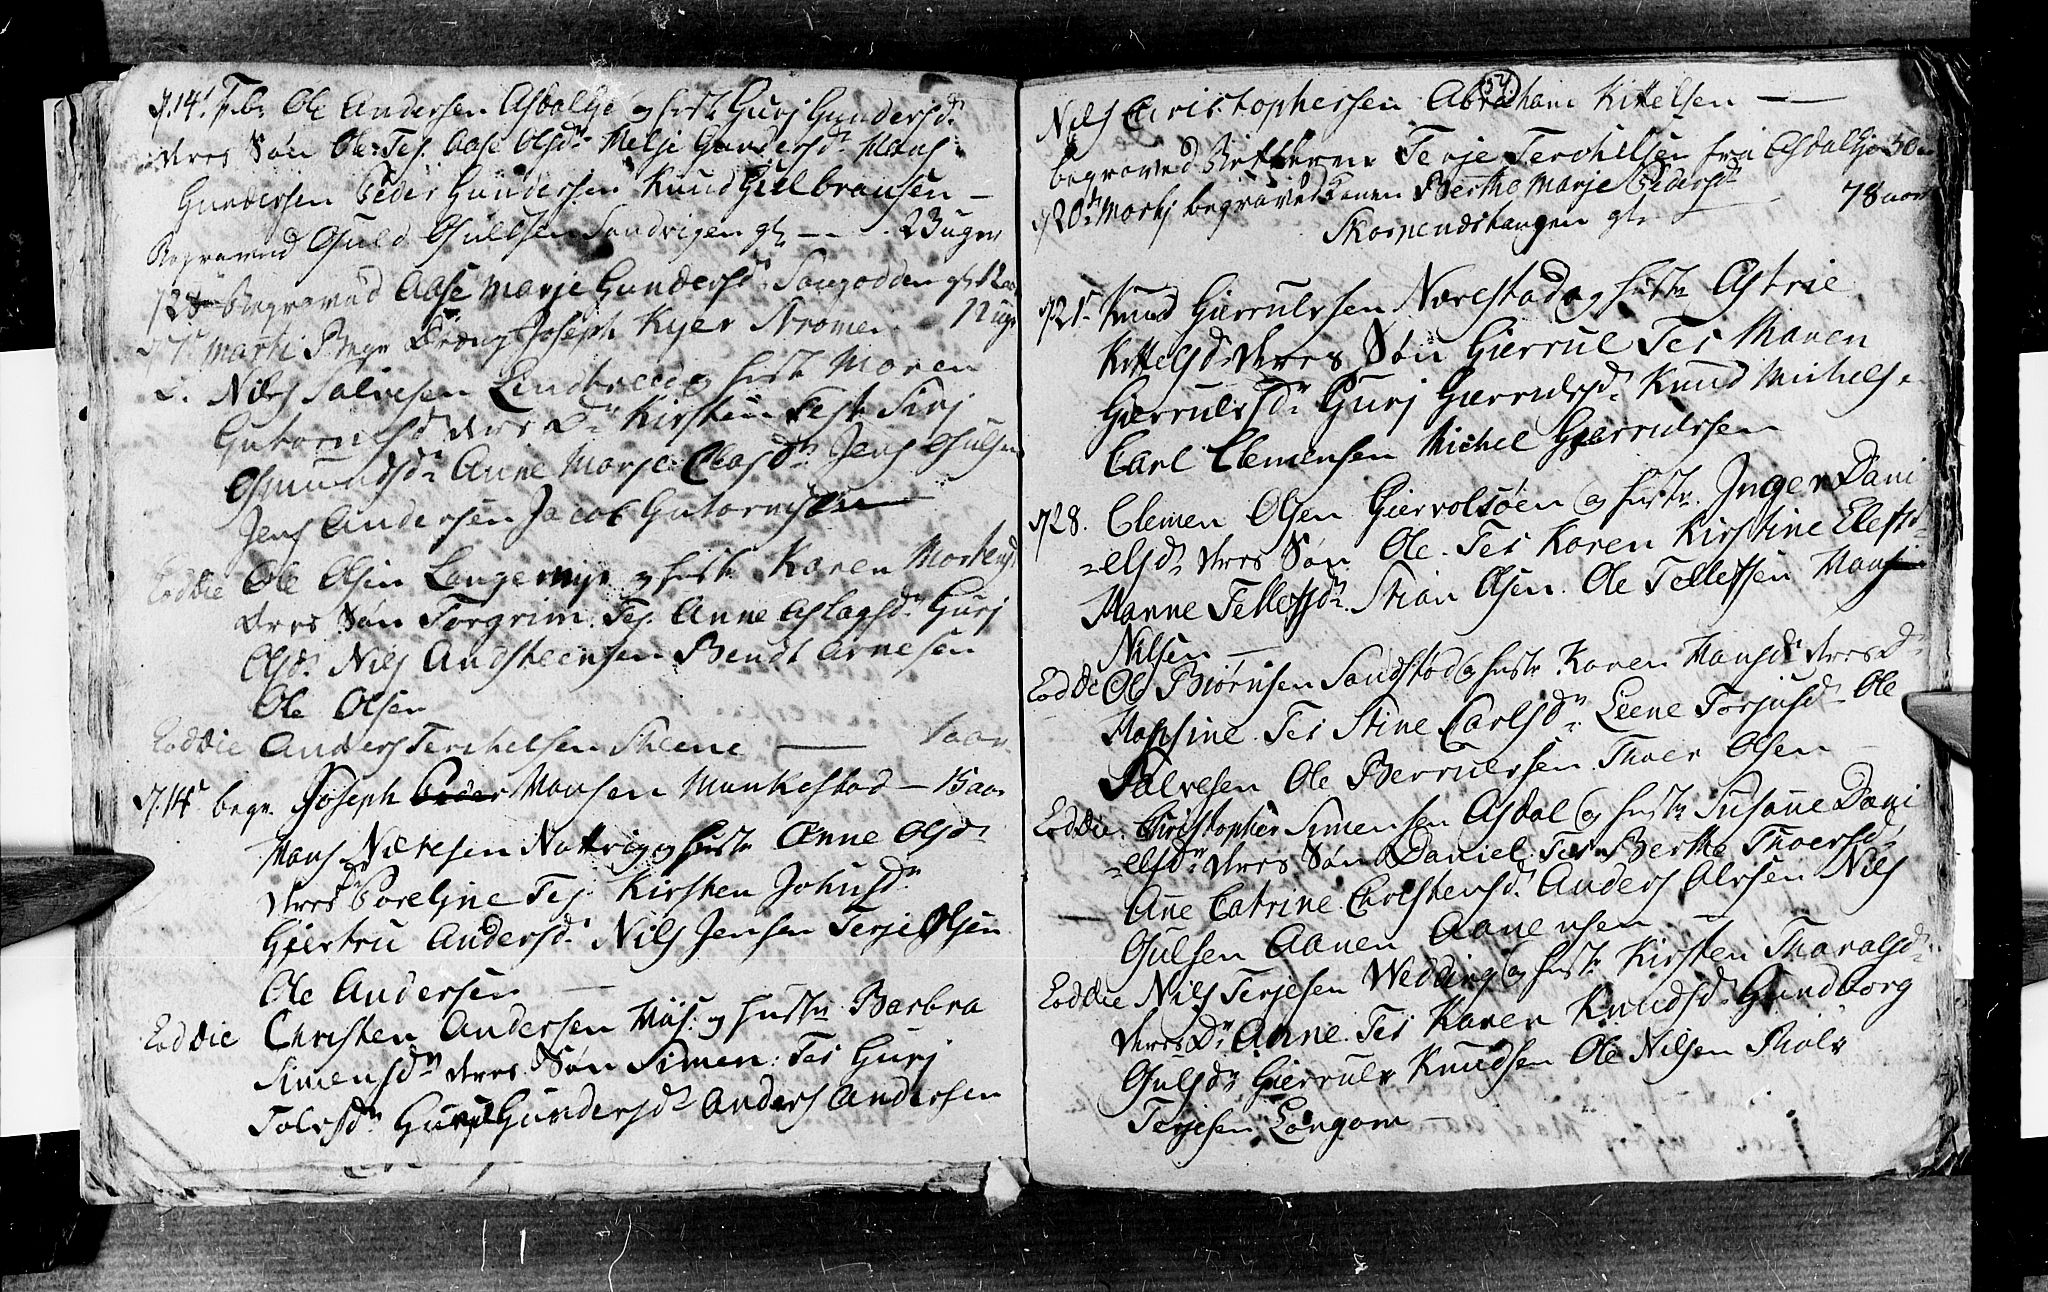 d. 14. Feb. Ole Andersen Asdalsje og hustr Gurj Gundersdr
deres Søn Ole: Tes. Aase Olsdr Helje Gundersdr Hans
Gundersen Peder Gundersen Knud Gulbransen —
Begraved Gull Gullsen Sandvigen gl — 23 uger
d 28 begraved Aase Marje Gundersdr Sangodden gl
d 7. Marti Begr Dreng Joseph Kyer Stromen
d. Niels Salvesen Lindtveed og hustr Maren
Gutormsdr deres Dr Kirstin Test Sirj
Osmundsdr Anne Marje Olasdr Jens Gulsen
Jens Andersen Jacob Gutormsen
Eoddie Ole Olsen Langemyr og hustr Karen Mortensd
deres Søn Torgrim. Tes. Anne Aslagsdr Gurj
Olsdr Nils Andsteensen Bendt Arnesen
Ole Olsen
Eoddie Anders Terchelsen Skeene — 1 aar
d. 14. begr. Joseph Peder Hansen Munkestad — 15 aar
Hans Nielsen Nattvig og hustr Anne Olsdr
deres Dr Poreljne Tes. Kirsten Johnsdr
Giertru Andersdr Nils Jensen Terje Olsen
Ole Andersen —
Eoddie Christen Andersen Hiis. og hustr Barbra
Simensdr deres Søn Simen: Tes Gurj
Tolvsdr Gurj Gundersdr Anders Andersen
54.
Nils Christophersen Abraham Kittelsen —
begraved Terje Terchelsen fra Asdalsje 50
d 20 Martj begraved Konen Berthe Marje Pedersdr
Skorpendstangen gl. — 78 aar
d 21. Knud Gierrulsen Nærestad og hustr Astrie
Kittelsdr deres Søn Gierrul Tes Maren
Gierrulsdr Gurj Gierrulsdr Knud Michelsen
Carl Clemensen Michel Gierrulsen
d 28. Clemen Olsen Giervolsøen og hustr. Inger Dani
=elsdr deres Søn Ole. Tes Karen Kirstine
Hanne Tellefsdr. Stian Olsen. Ole Tellefsen Hans
Nilsen —
Eoddie Ole Biørnsen Sandstad og hustr Karen Hansdr deres Dr
Hansine. Tes Stine Carlsdr. Leene Torjusdr Ole
Salvesen Ole Berrulsen Thoer Olsen —
Eoddie. Christopher Simensen Asdal og hustr Susane Dani
=elsdr deres Søn Daniel. Tes Berthe Thoersdr
Ane Catrine Christensdr Anders Alvsen Nils
Gulsen Aanen Aanensen —
Eoddie Nils Terjesen Wedding og hustr Kirsten Tharalsdr
deres Dr Anne. Tes Karen Knudsdr Gundborg
Gulsdr Gierrulv Knudsen Ole Nilsen
Terjesen Langom —